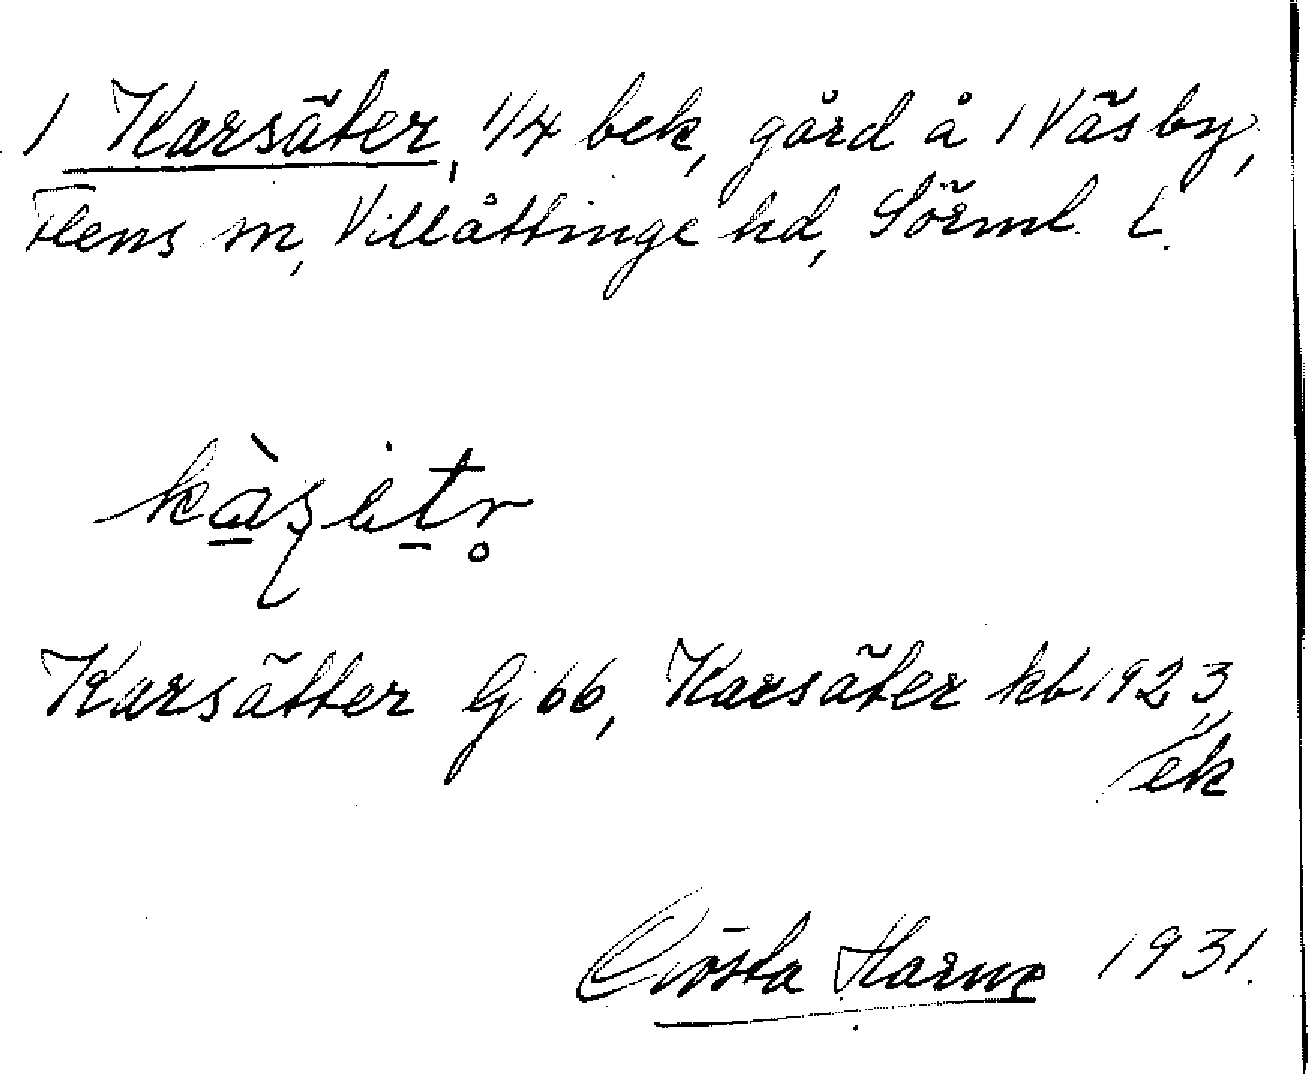 1 Karsäter, 1/4 bek, gård å 1 Väsby,
Flens sn, Villåttinge hd, Sörml. L.
Karsätter Gj 66, Karsäter kb 1923,
ek
Gösta Harne 1931.